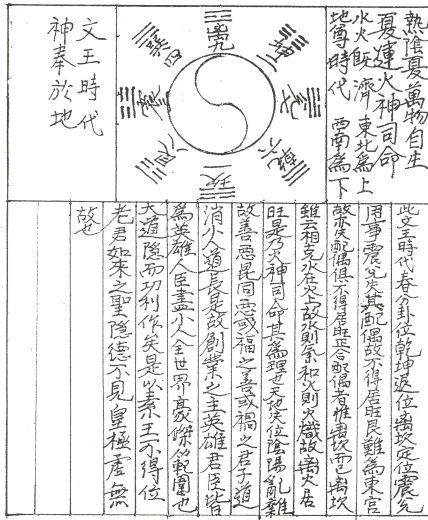 熱陰夏萬物自生
夏運火神司命
水火旣濟 東北為上
地尊時代 西南為下
离九
坤二
兌七
乾六
坎一
艮八
震三
巽四
文王時代
神奉於地
此文王時代春分卦位乾坤退位离坎定位震兌
用事震兌失其配偶故不得居旺艮難為東宮
故亦失配偶俱不得居旺正合配偶者惟离坎而已离坎
雖云相克水在火上故水則氣和火則火熾故离火居
旺是乃火神司命其為理也天地失位陰陽亂雜
故善惡昆同惡或福之善或禍之君子道
消小人道長是故創業之主英雄君臣皆
為英雄人臣盡小人全世界豪傑範圍也
大道隱而功利作矣是以素王不得位
老君如來之聖隱德不見皇極虛無
故也